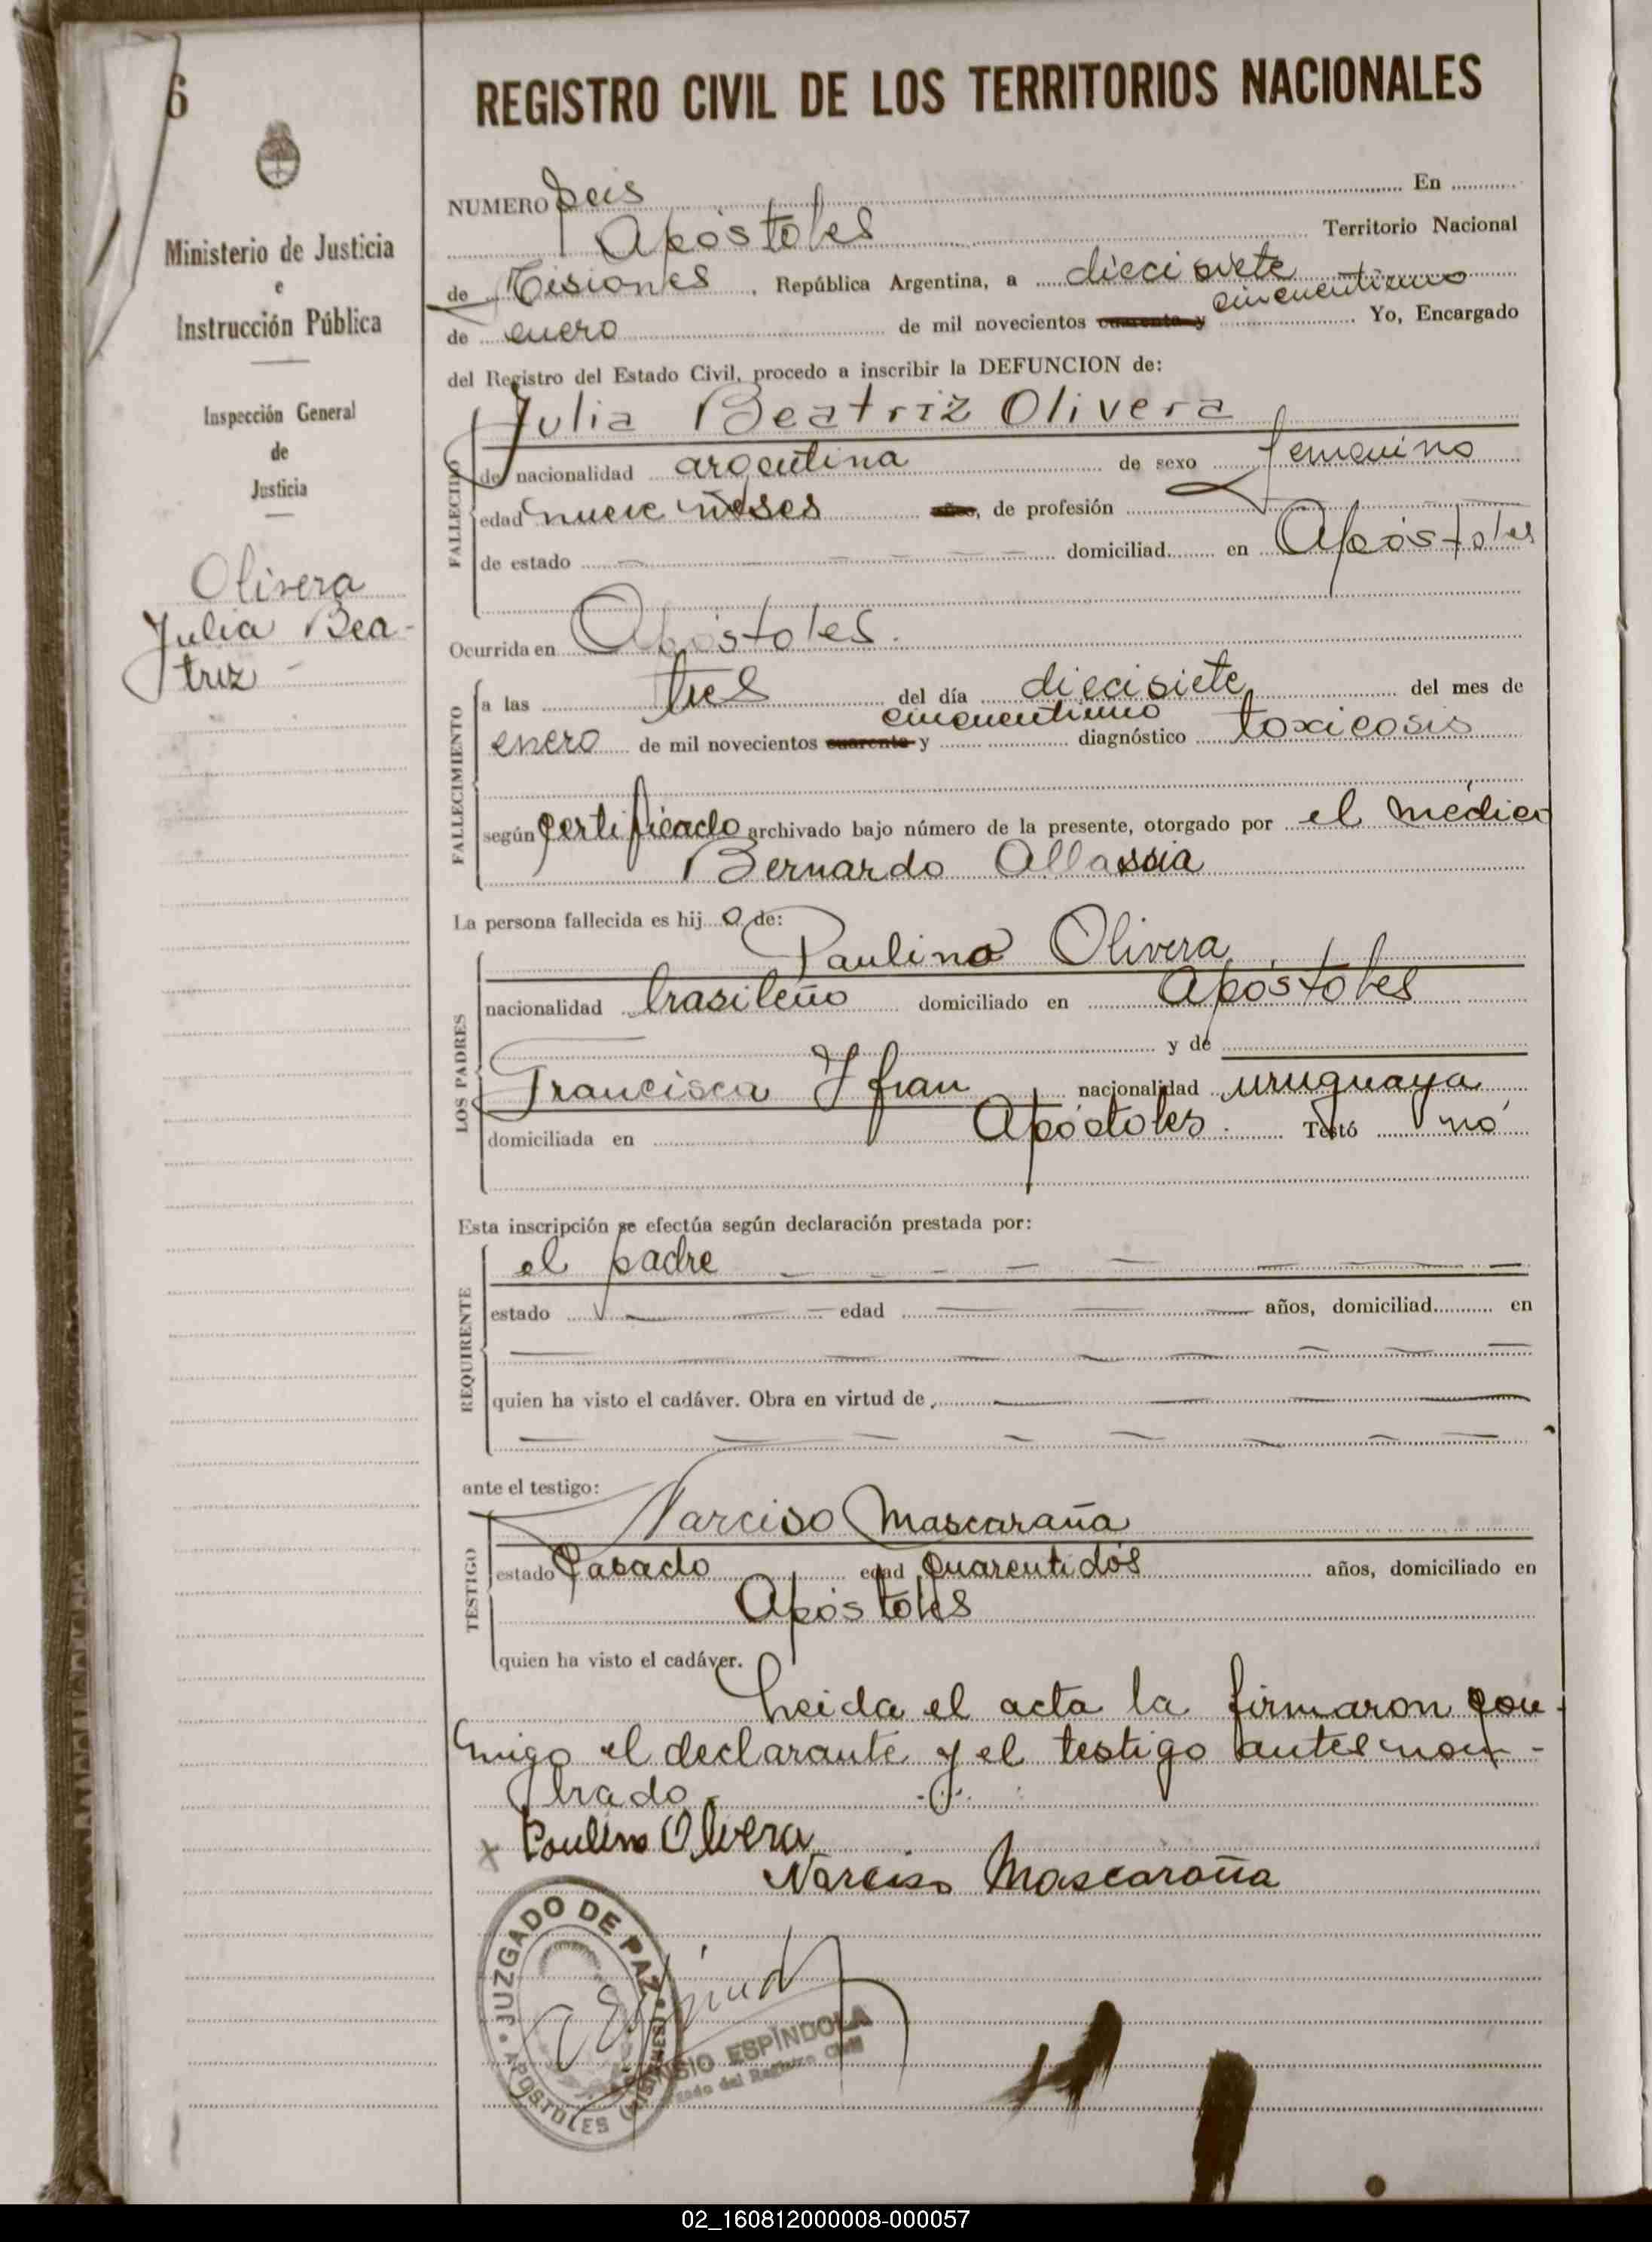 6
REGISTRO CIVIL DE LOS TERRITORIOS NACIONALES
Ministerio de Justicia
e
Instrucción Pública
Inspección General
de
Justicia
Olivera
Julia Bea-
triz -
NUMERO Seis En
Apóstoles Territorio Nacional
de Misiones, República Argentina, a diecisiete
de enero de mil novecientos cuarenta y cincuentiuno Yo, Encargado
del Registro del Estado Civil, procedo a inscribir la DEFUNCION de:
Julia Beatriz Olivera
FALLECIDO
de nacionalidad argentina de sexo femenino
edad nueve meses años, de profesión
de estado — — — — — domiciliad en Apóstoles
Ocurrida en Apóstoles.
FALLECIMIENTO
a las tres del día diecisiete del mes de
enero de mil novecientos cuarenta y cincuentiuno diagnóstico toxicosis
según certificado archivado bajo número de la presente, otorgado por el médico
Bernardo Allassia
La persona fallecida es hija de:
LOS PADRES
Paulino Olivera
nacionalidad brasileño domiciliado en Apóstoles
y de
Francisca Yfran nacionalidad uruguaya
domiciliada en Apóstoles. Testó no
Esta inscripción se efectúa según declaración prestada por:
REQUIRENTE
el padre — — — — — — —
estado — — edad — — — años, domiciliad en
quien ha visto el cadáver. Obra en virtud de
ante el testigo:
TESTIGO
Narciso Mascaraña
estado Casado edad Cuarentidós años, domiciliado en
Apóstoles
quien ha visto el cadáver.
Leida el acta la firmaron con-
migo el declarante y el testigo antes nom-
brado.
x Paulino Olivera
Narciso Mascaraña
JUZGADO DE PAZ
APOSTOLES (MISIONES)
ESPÍNDOLA
del Registro Civil
02_160812000008-000057